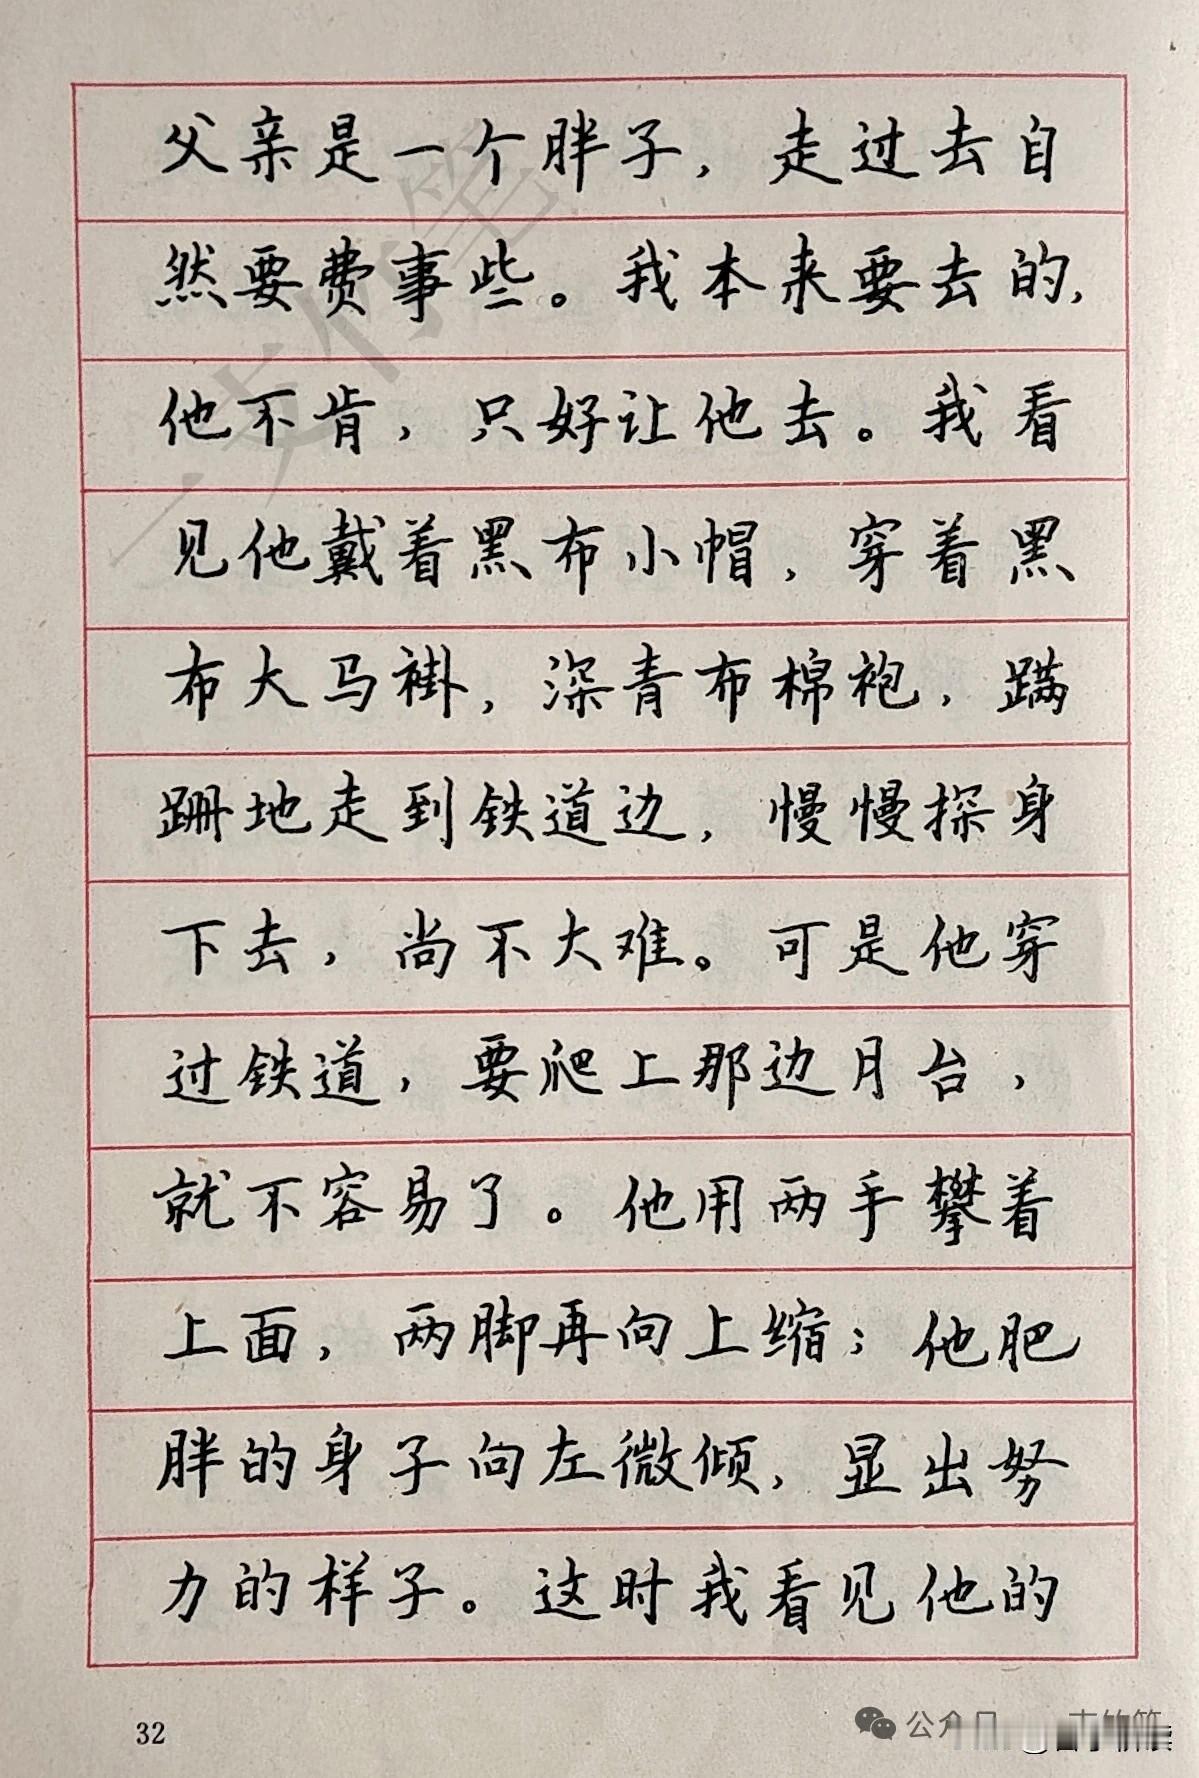 父亲是一个胖子，走过去自
然要费事些。我本来要去的，
他不肯，只好让他去。我看
见他戴着黑布小帽，穿着黑
布大马褂，深青布棉袍，蹒
跚地走到铁道边，慢慢探身
下去，尚不大难。可是他穿
过铁道，要爬上那边月台，
就不容易了。他用两手攀着
上面，两脚再向上缩；他肥
胖的身子向左微倾，显出努
力的样子。这时我看见他的
32
公众号